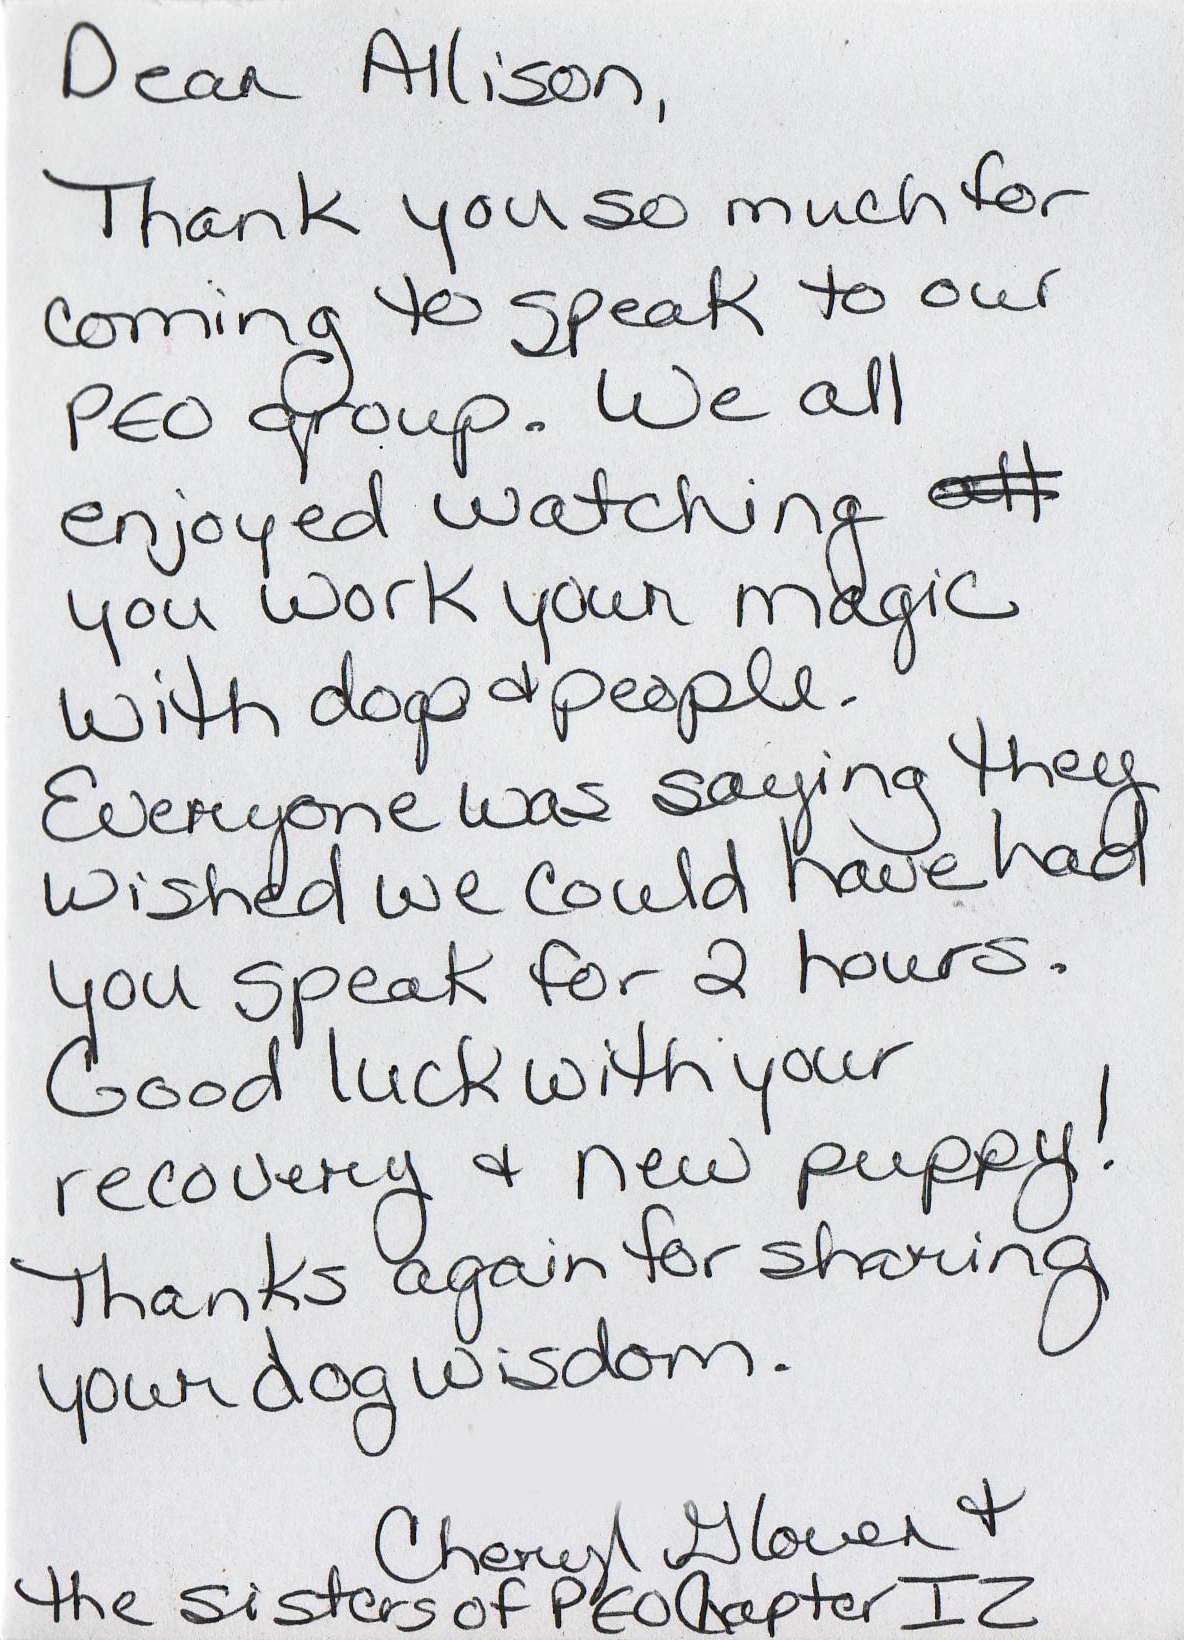 Dear Allison,
Thank you so much for
coming to speak to our
PEO group. We all
enjoyed watching all
you work your magic
with dogs & people.
Everyone was saying they
wished we could have had
you speak for 2 hours.
Good luck with your
recovery & new puppy!
Thanks again for sharing
your dog wisdom.
Cheryl Glover &
the sisters of PEO Chapter IZ